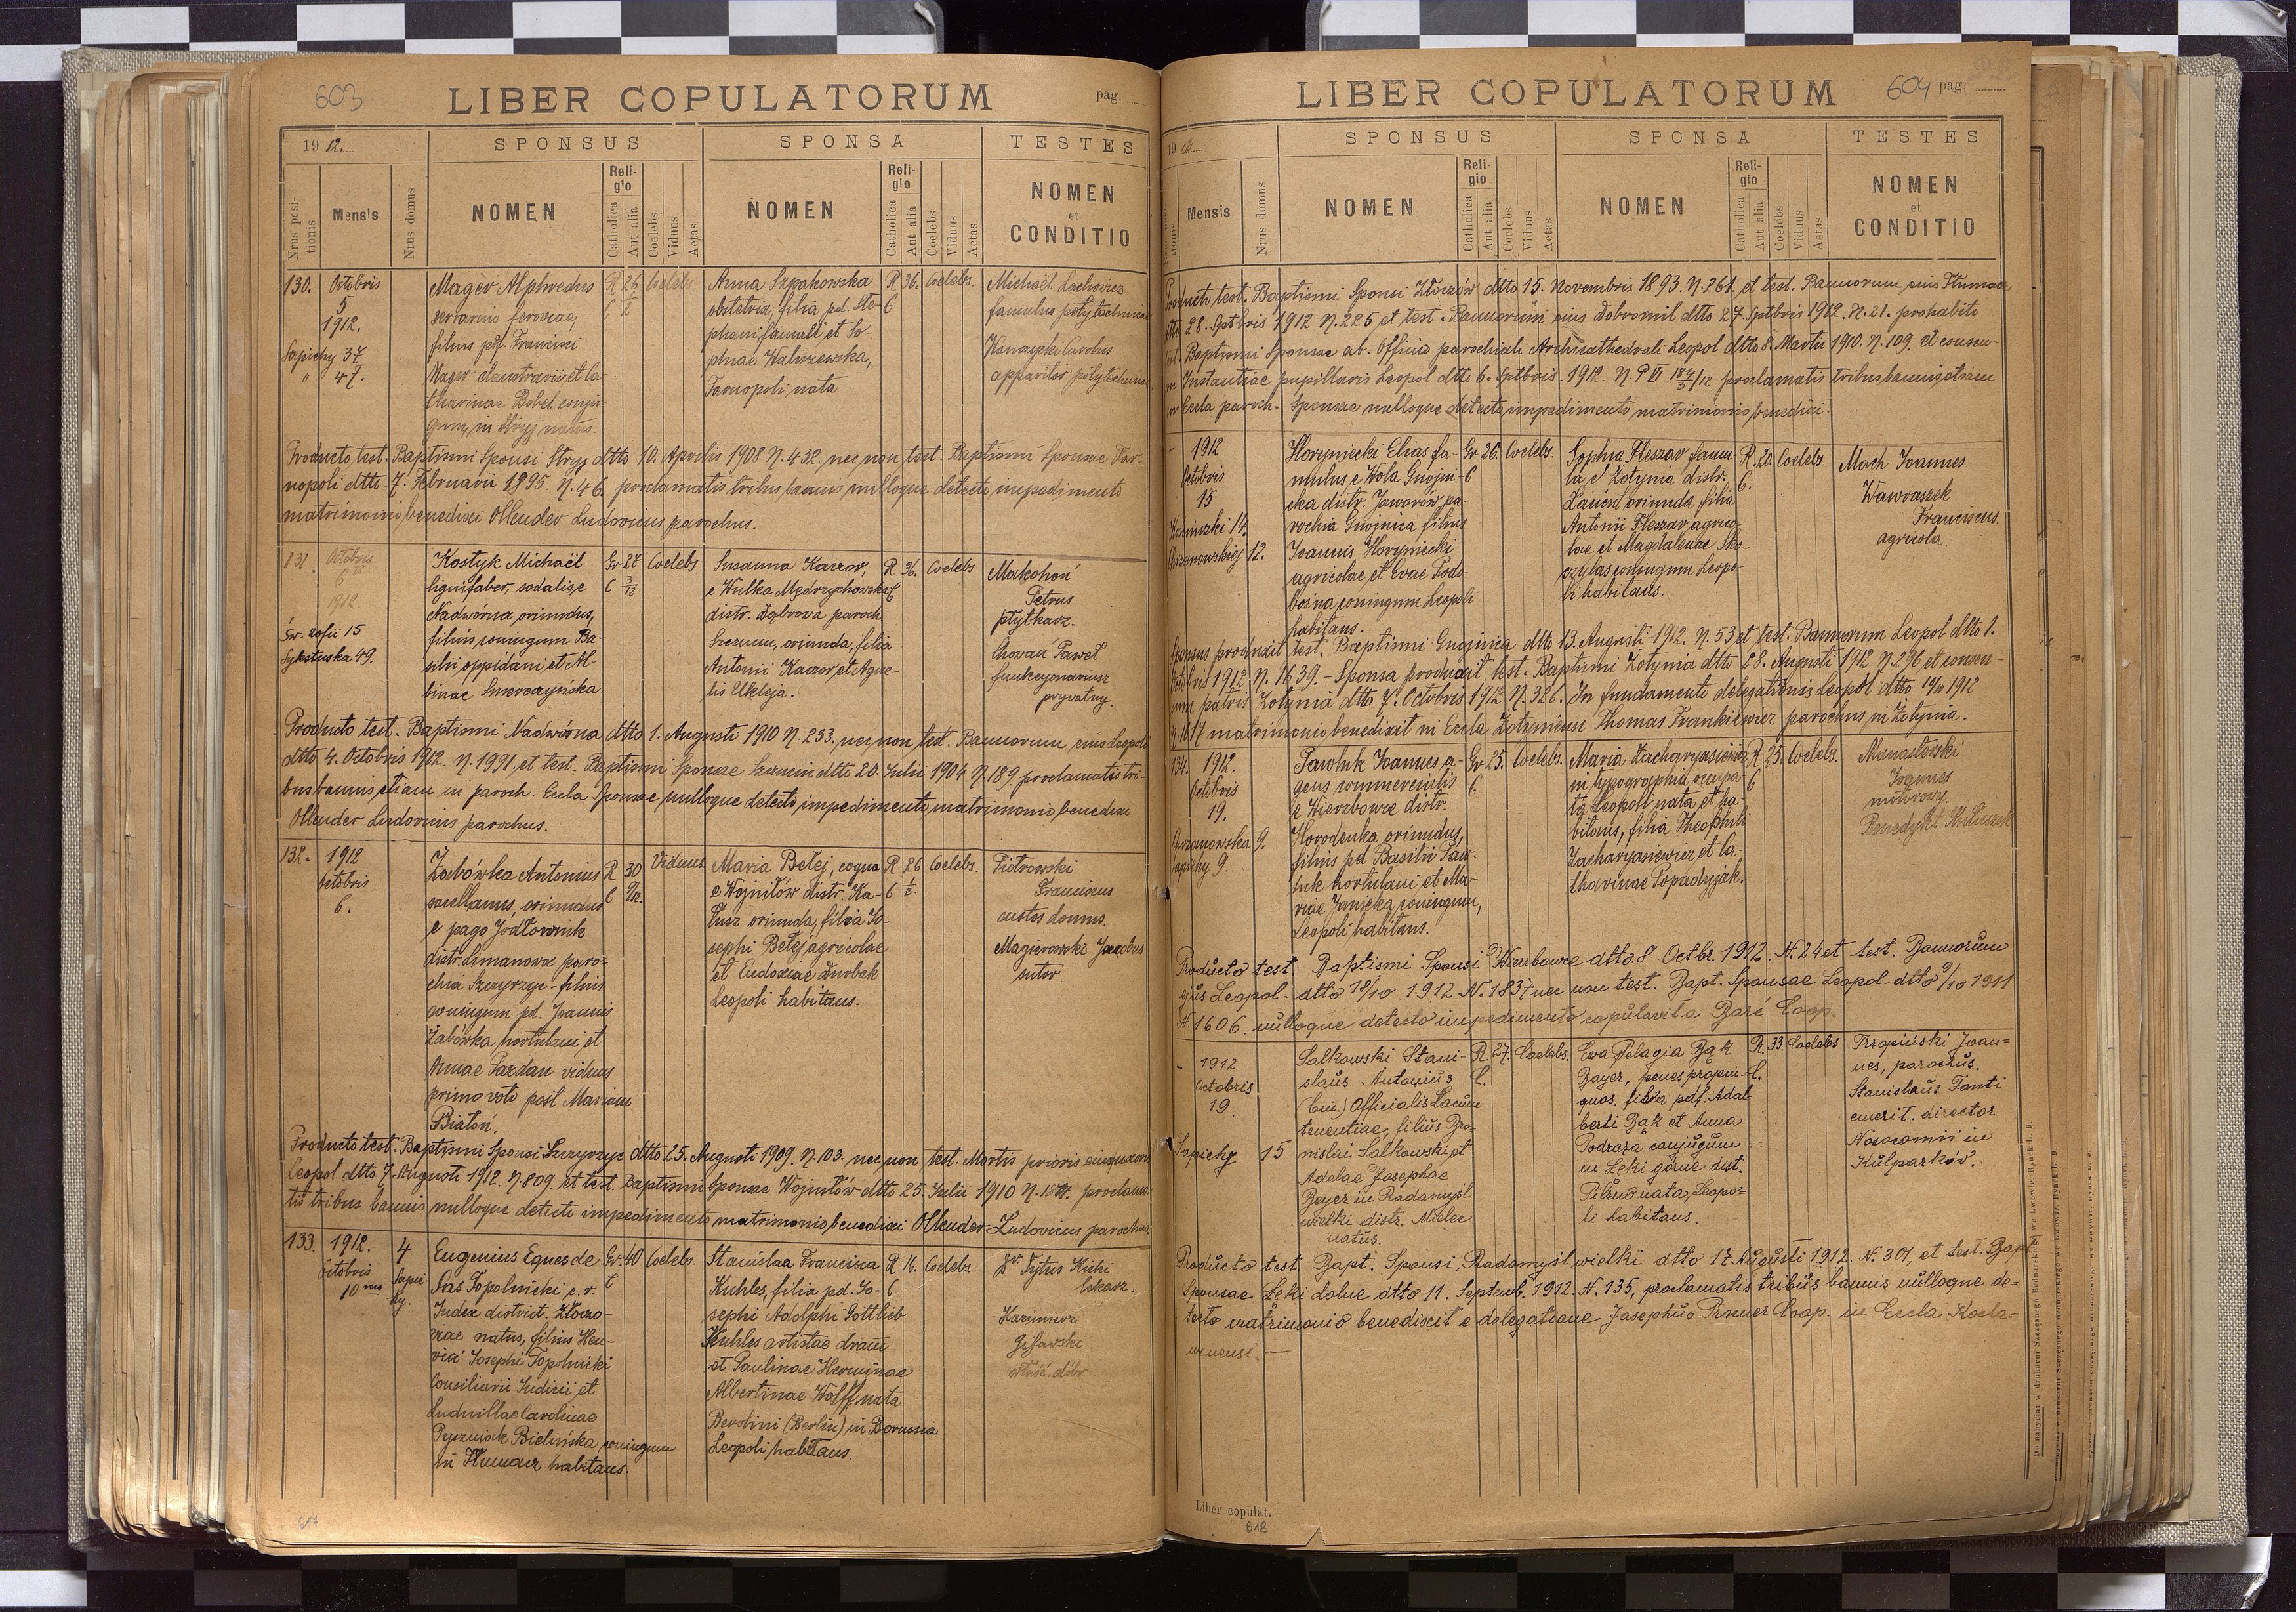 603
LIBER COPULATORUM
pag.
19 12.
SPONSUS
SPONSA
TESTES
Nrus positionis
Mensis
Nrus domus
NOMEN
Religio
Catholica
Aut alia
Coelebs
Viduus
Aetas
NOMEN
Religio
Catholica
Aut alia
Coelebs
Viduus
Aetas
NOMEN
et
CONDITIO
130.
Octobris
5
1912.
Sapiehy 37
" 47.
Mager Alphredus
filius pdf. Francisci
Mager et Ca-
tharinae Bobel conju-
gum, in Stryj natus.
R 26 Coelebs.
C
Anna Szpakowska
obstetrix, filia pd. Ste-
phani famuli et So-
phiae Waliszewska,
Tarnopoli nata
R 36. Coelebs.
C
Michaël Lachowicz
famulus polytechnicae
Carolus
apparitor polytechnicae
Producto test. Baptismi Sponsi Stryj dtto 10. Aprilis 1908 N. 432, nec non test. Baptismi Sponsae Tar-
nopoli dtto 7. Februarii 1895. N. 46. proclamatis tribus bannis nulloque detecto impedimento
matrimonio benedixi Ollender Ludovicus parochus.
131.
Octobris
6
1912.
Św. Zofii 15
Sykstuska 49.
Kostyk Michaël
lignifaber, sodalis, e
Nadwórna oriundus,
filius coniugum Ba-
silii oppidani, et Al-
binae Smereczyńska
Gr 27 Coelebs.
C 3/12
Susanna Kaczor,
e Wulka Mędrzychowska
distr. Dąbrowa paroch.
Szczucin, oriunda, filia
Antonii Kaczor et Agne-
tis Ukleja.
R 36. Coelebs
C
Makohoń
Petrus
płytkarz.
Chowań Paweł
funkcyonariusz
prywatny.
Producto test. Baptismi Nadwórna dtto 1. Augusti 1910 N. 233. nec non test. Bannorum eius Leopoli
dtto 4. Octobris 1912. N. 1991. et test. Baptismi Sponsae Szczucin dtto 20. Julii 1904 N. 189, proclamatis tri-
bus bannis etiam in paroch. Eccla Sponsae, nulloque detecto impedimento matrimonio benedixi
Ollender Ludovicus parochus.
132.
1912
Octobris
6.
Żabówka Antonius
sacellanus, oriundus
e pago Jodłownik
distr. Limanowa paro-
chia Szczyrzyc - filius
coniugum pd. Joannis
Żabówka, hortulani, et
Annae Pazdan viduus
primo voto post Mariam
Biatoń.
R 30 Viduus
C
Maria Betej, coqua
e Wojniłów distr. Ka-
łusz oriunda, filia Jo-
sephi Betej agricolae
et Eudoxiae Durbak
Leopoli habitans.
R 26 Coelebs.
C 1/2
Piotrowski
Franciscus
custos domus.
Magierowski Jacobus
sutor.
Producto test. Baptismi Sponsi Szczyrzyc dtto 25. Augusti 1909. N. 103. nec non test. Mortis prioris eius uxoris
Leopol dtto 7. Augusti 1912. N. 809 et test. Baptismi Sponsae Wojniłów dtto 25. Julii 1910 N. proclama-
tis tribus bannis nulloque detecto impedimento matrimonio benedixi Ollender Ludovicus parochus.
133.
1912.
Octobris
10 mo
4
Sapie-
hy.
Eugenius Eques de
Sas Topolnicki c. r.
Judex district. Złoczo-
viae natus, filius Hen-
rici Josephi Topolnicki
Consiliarii Judicii et
Ludmillae Carolinae
Bielińska coniugum
in Tłumacz habitans.
Gr. 40 Coelebs.
C
Stanislaa Francisca
Kuhles, filia pd. Jo-
sephi Adolphi Gottlieb
Kuhles artistae dram
et Paulinae Herminae
Albertinae Wolff nata
Berolini (Berlin) in Borussia
Leopoli habitans.
R Coelebs
C
Dr. Tytus
lekarz.
Kazimierz
Giławski
właść. dóbr
617
LIBER COPULATORUM
604 pag.
19 12
SPONSUS
SPONSA
TESTES
Mensis
Nrus domus
NOMEN
Religio
Catholica
Aut alia
Coelebs
Viduus
Aetas
NOMEN
Religio
Catholica
Aut alia
Coelebs
Viduus
Aetas
NOMEN
et
CONDITIO
Producto test. Baptismi Sponsi Złoczów dtto 15. Novembris 1893. N. 261, et test. Bannorum eius Tłumacz
dtto 28. Sptbris 1912 N. 225 et test. Bannorum eius Dobromil dtto 27. Sptbris 1912. N. 21. prohabito
test. Baptismi Sponsae ab. Officio parochiali Archicathedrali Leopol dtto 8. Martii 1910. N. 109. et consen-
su Instantiae pupillaris Leopol dtto 6. Sptbris. 1912. N. P VI proclamatis tribus bannis etiam
in Eccla paroch. Sponsae nulloque detecto impedimento matrimonio benedixi.
1912
Octobris
15
14.
Chrzanowskiej 12.
Horyniecki Elias fa-
mulus, e Wola Gnojni-
cka distr. Jaworów pa-
rochia Gnojnica filius
Joannis Horyniecki
agricolae, et Evae Pod-
bożna coniugum Leopoli
habitans.
Gr 26. Coelebs.
C
Sophia Fleszar famu-
la, e Żołynia distr.
Łańcut oriunda, filia
Antonii Fleszar agrico-
lae et Magdalenae Sko-
czylas coniugum Leopo-
li habitans.
R. 20. Coelebs.
C.
Mach Joannes
Wawraszek
Franciscus.
agricola.
Sponsus produxit test. Baptismi Gnojnica dtto 13. Augusti 1912. N. 53 et test. Bannorum Leopol dtto 1.
Octobris 1912 N. 1639. - Sponsa produxit test. Baptismi Żołynia dtto 28. Augusti 1912 N. 296 et consen-
sum patris Żołynia dtto 7. Octobris 1912 N. 326. In fundamento delegationis Leopol dtto 1912
N. 1817 matrimonio benedixit in Eccla Żołyniensi Thomas Frankiewicz parochus in Żołynia.
134.
1912.
Octobris
19.
Chrzanowska 9.
Sapiehy 9.
Pawluk Joannes a-
gens commercialis
e Wierzbowce distr.
Horodenka oriundus,
filius pd Basilii Paw-
luk hortulani, et Ma-
riae Janicka, coniugum,
Leopoli habitans.
Gr 25. Coelebs.
C
Maria Zacharyasiewicz
in typographia occupa-
ta, Leopoli nata, et ha-
bitans, filia Theophili
Zacharyasiewicz et Ca-
tharinae Topadyjak.
R 25. Coelebs.
C
Monasterski
Joannes
motorowy.
Benedykt
Producto test. Baptismi Sponsi Wierzbowce dtto 8 Octbr. 1912. N. 24 et test. Bannorum
ejus Leopol. dtto 18/10 1912 N. 1837 nec non test. Bapt. Sponsae Leopol dtto 9/10 1911
N. 1606. nulloque detecto impedimento copulavit a Coop.
1912
Octobris
19.
Sapiehy 15
Salkowski Stani-
slaus Antonius
(bin.) Officialis Locum
tenentiae, filius Bro-
nislai Salkowski et
Adelae Josephae
Beyer in Radomyśl
wielki distr. Mielec
natus.
R. 27. Coelebs.
C.
Eva Pelagia Bąk
Bayer, penes propin-
quos. filia pdf. Adal-
berti Bąk et Anna
Podraza conjugum
in Łęki górne dist.
Pilzno nata, Leopo-
li habitans.
R. 33. Coelebs
C.
Trzopiński Joan-
nes, parochus.
Stanislaus Tonti
emerit. director
in
Kulparków.
Producto test. Bapt. Sponsi, Radomyśl wielki dtto 17 Augusti 1912. N. 301, et test. Bapt.
Sponsae Łęki dolne dtto 11. Septemb. 1912. N. 135, proclamatis tribus bannis nulloque de-
tecto matrimonio benedixit e delegatione Josephus Coop. in Eccla Kocha-
winensi. —
Liber copulat.
618
Do nabycia: w drukarni Szczęsnego Bednarskiego we Lwowie, Rynek L. 9.